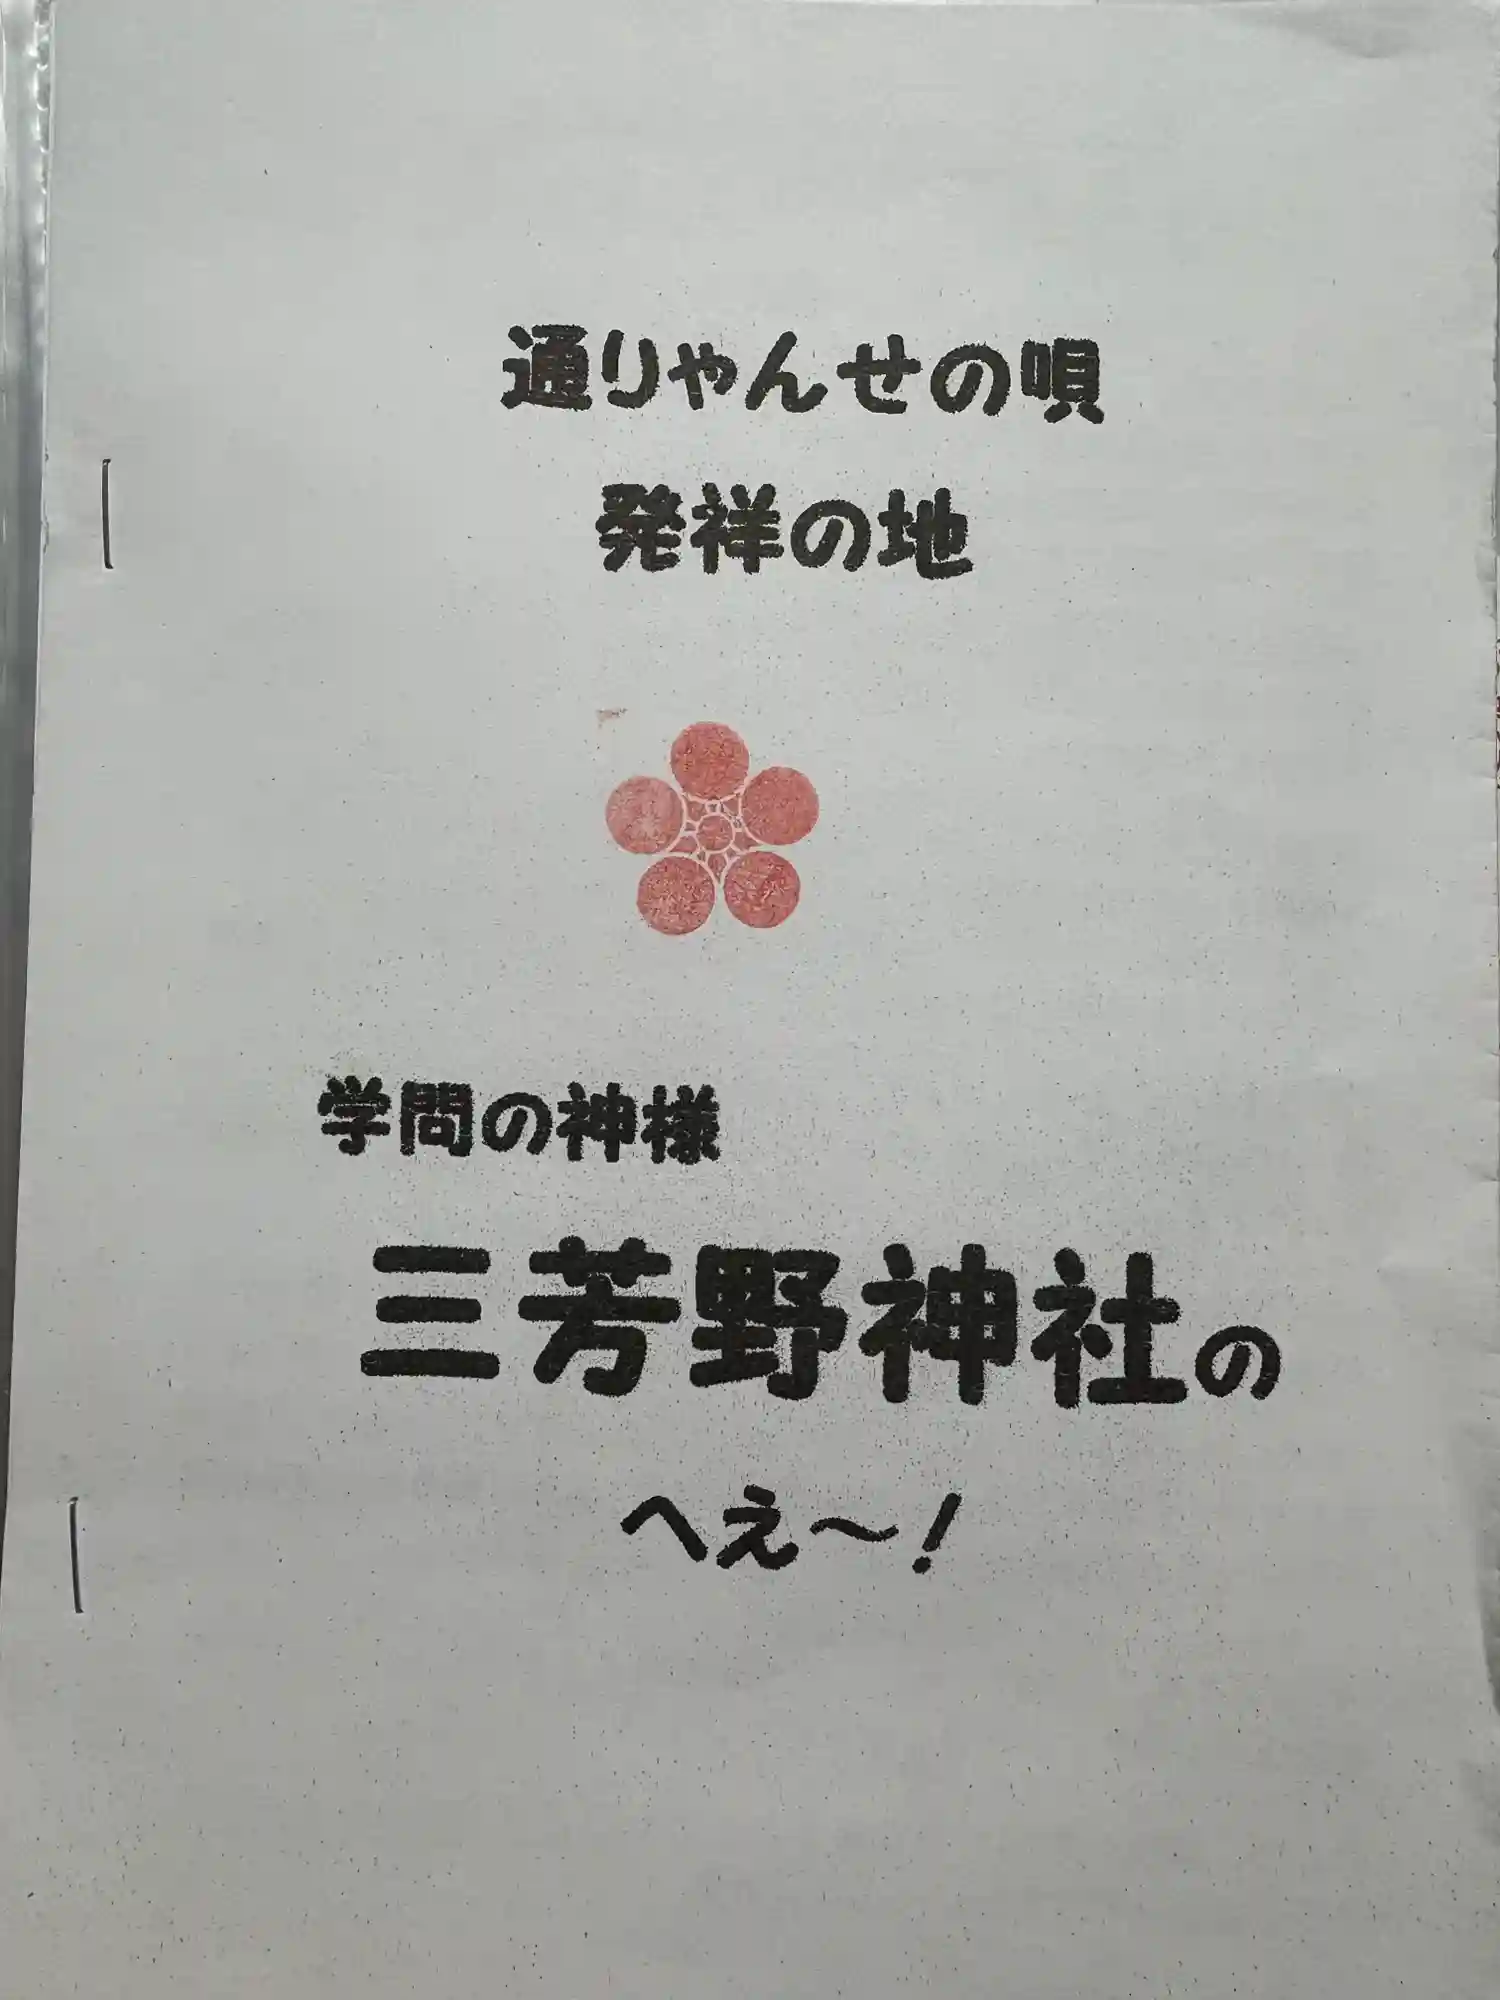 通りゃんせの唄
発祥の地
学問の神様
三芳野神社の
へえ～！